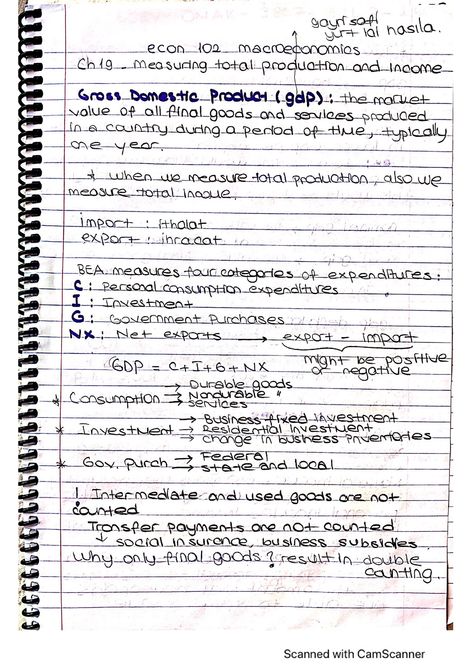 gayri safi
yurt içi hasıla.
econ 102 macroeconomics
Ch 19 - measuring total production and income
Gross Domestic Product (gdp) : the market
value of all final goods and services produced
in a country during a period of time, typically
one year.
* when we measure total production, also we
measure total income.
import : ithalat
export : ihracat
BEA measures four categories of expenditures :
C : Personal consumption expenditures
I : Investment
G : Government Purchases
NX : Net exports → export - import
might be positive
or negative
GDP = C+I+G+NX
→ Durable goods
* Consumption → Nondurable "
→ services
→ Business fixed investment
* Investment → Residential investment
→ change in business inventories
* Gov. purch → Federal
→ state and local
! Intermediate and used goods are not
counted
Transfer payments are not counted
↓ social insurance, business subsidies.
Why only final goods ? result in double
counting.
Scanned with CamScanner